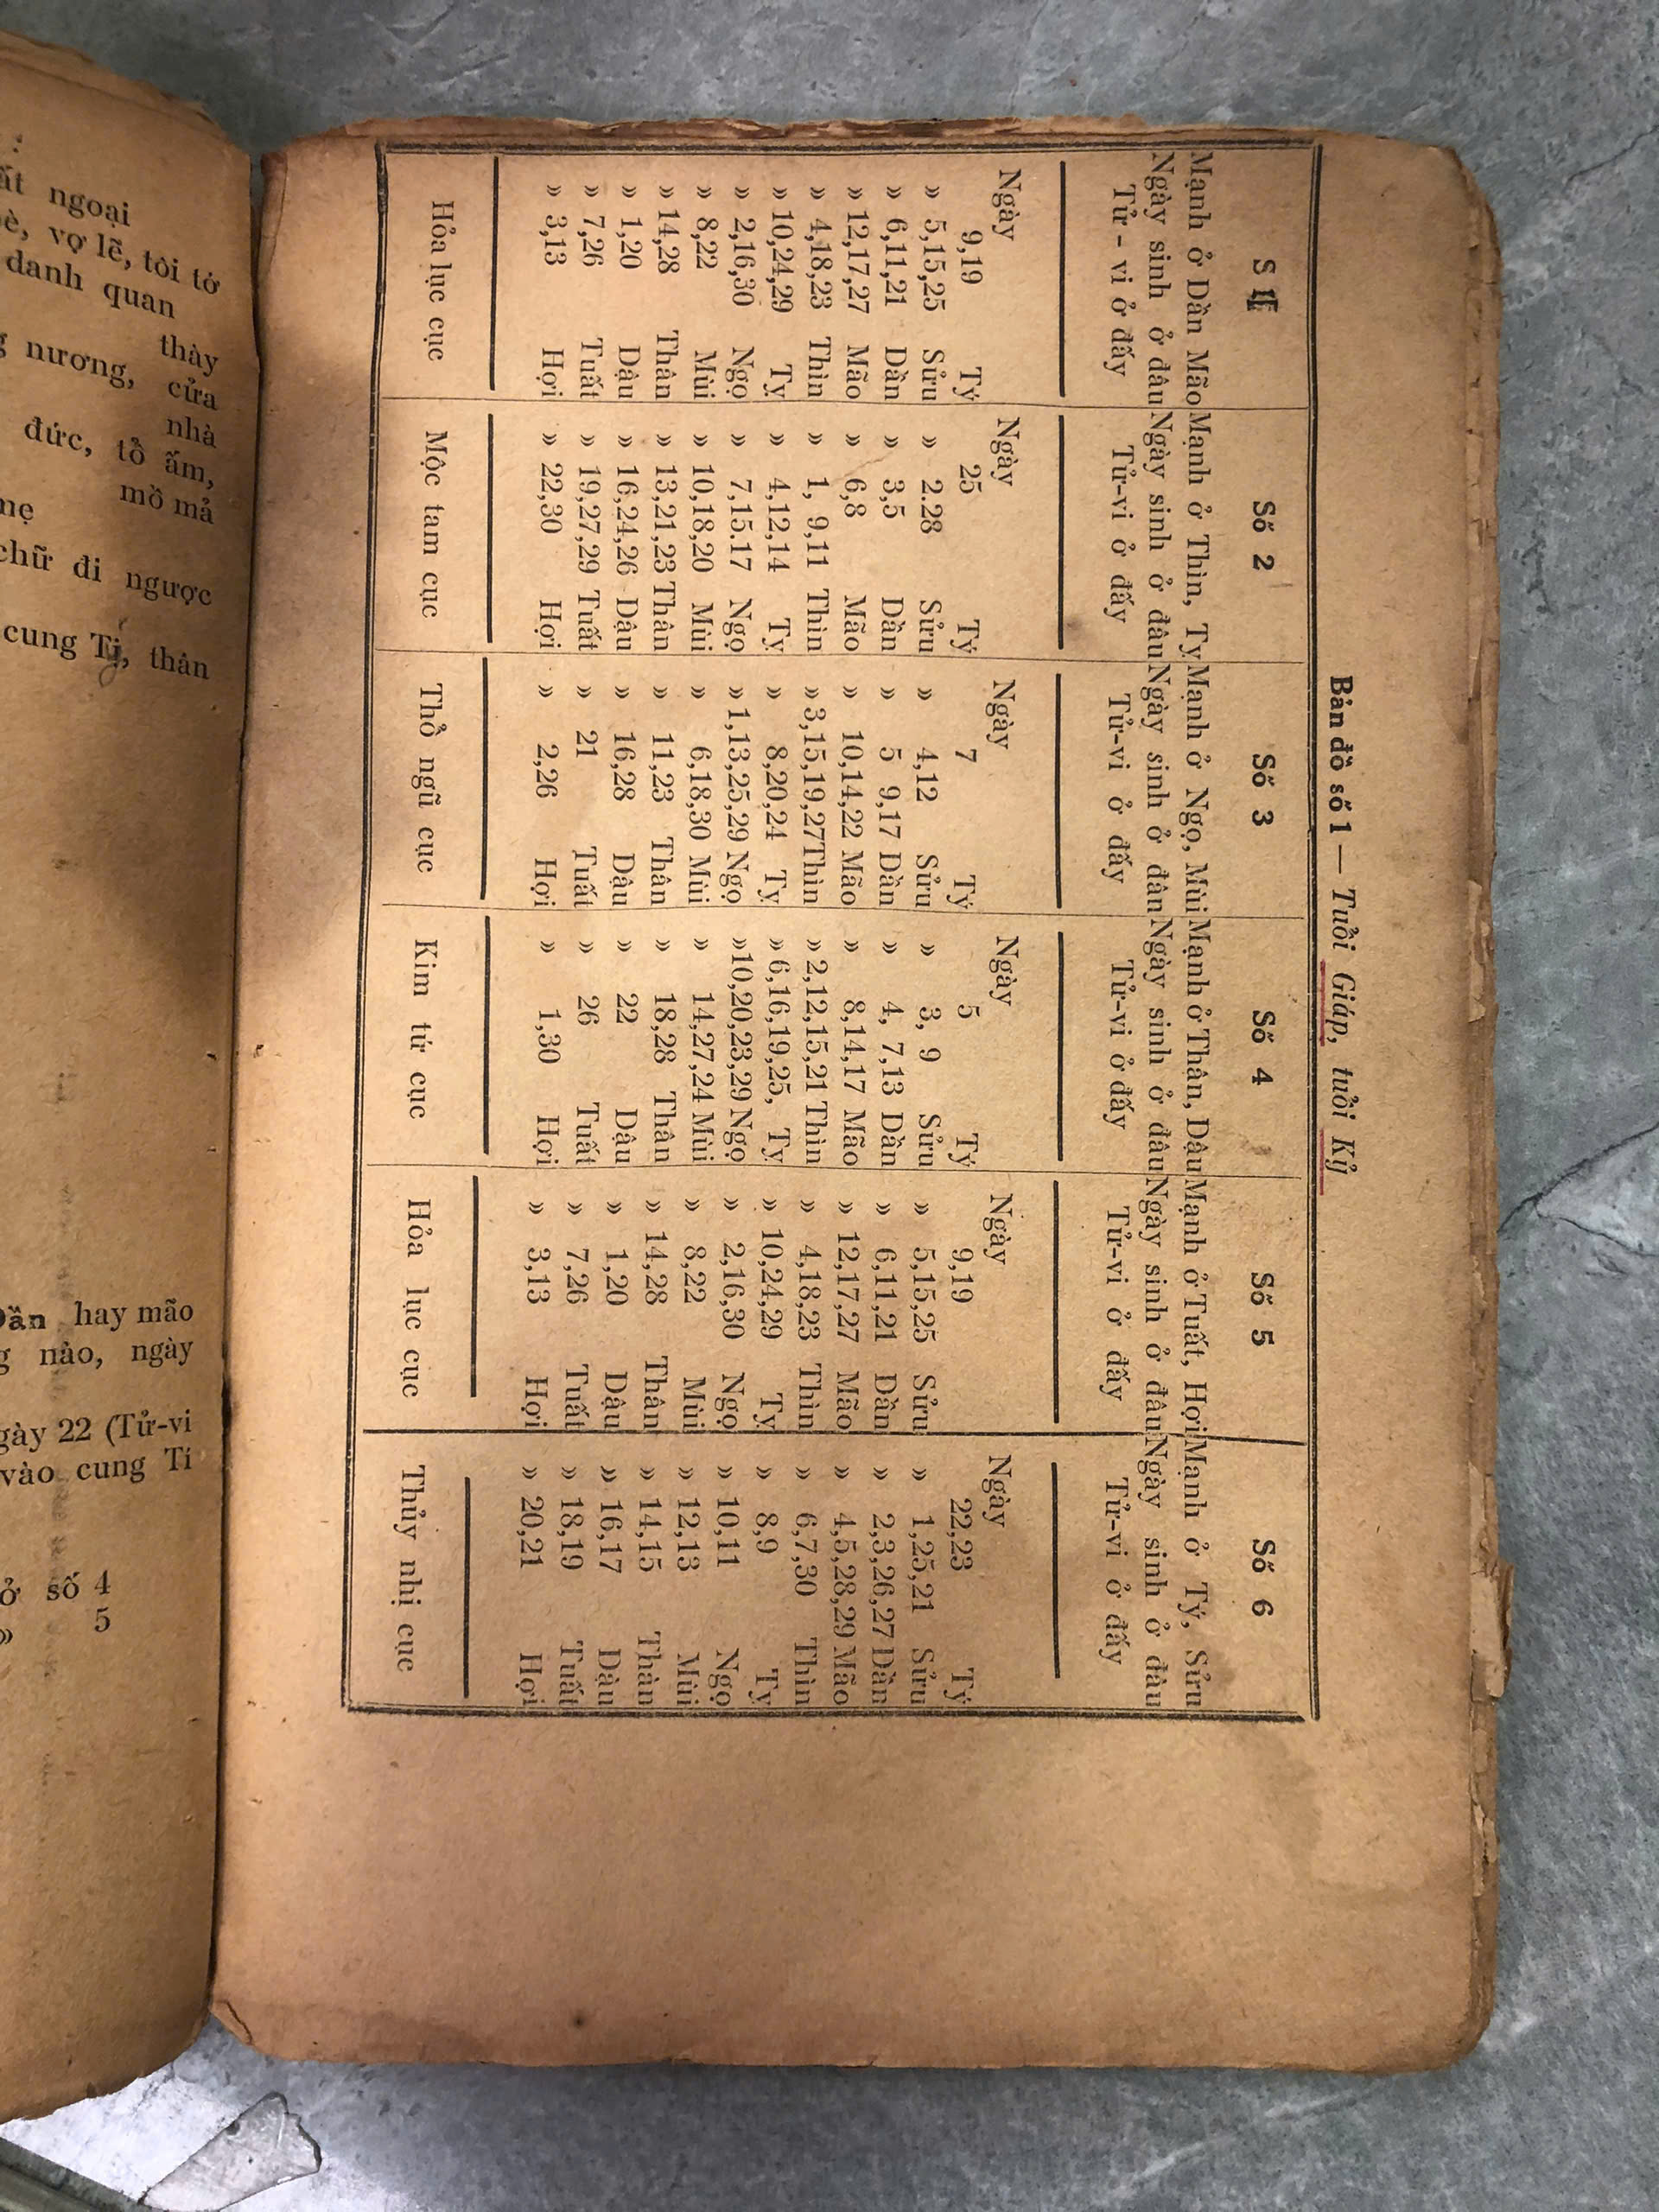 ất ngoại
è, vợ lẽ, tôi tớ
danh quan
thày
nương, cửa
nhà
đức, tổ ấm,
mồ mả
mẹ
chữ đi ngược
cung Tị, thân
Dần hay mão
nảo, ngày
gày 22 (Tử-vi
vào cung Tí
ở số 4
» 5
Bản đồ số 1 — Tuổi Giáp, tuổi Kỷ
Mạnh ở Dần Mão
Ngày sinh ở đâu
Tử - vi ở đấy
Ngày
9,19 Tý
» 5,15,25 Sửu
» 6,11,21 Dần
» 12,17,27 Mão
» 4,18,23 Thìn
» 10,24,29 Tỵ
» 2,16,30 Ngọ
» 8,22 Mùi
» 14,28 Thân
» 1,20 Dậu
» 7,26 Tuất
» 3,13 Hợi
Hỏa lục cục
Số 2
Mạnh ở Thìn, Tỵ
Ngày sinh ở đâu
Tử-vi ở đấy
Ngày
25 Tý
» 2.28 Sửu
» 3,5 Dần
» 6,8 Mão
» 1, 9,11 Thìn
» 4,12,14 Tỵ
» 7,15.17 Ngọ
» 10,18,20 Mùi
» 13,21,23 Thân
» 16,24,26 Dậu
» 19,27,29 Tuất
» 22,30 Hợi
Mộc tam cục
Số 3
Mạnh ở Ngọ, Mùi
Ngày sinh ở đân
Tử-vi ở đấy
Ngày
7 Tý
» 4,12 Sửu
» 5 9,17 Dần
» 10,14,22 Mão
» 3,15,19,27 Thìn
» 8,20,24 Tỵ
» 1,13,25,29 Ngọ
» 6,18,30 Mùi
» 11,23 Thân
» 16,28 Dậu
» 21 Tuất
» 2,26 Hợi
Thổ ngũ cục
Số 4
Mạnh ở Thân, Dậu
Ngày sinh ở đâu
Tử-vi ở đấy
Ngày
5 Tý
» 3, 9 Sửu
» 4, 7,13 Dần
» 8,14,17 Mão
» 2,12,15,21 Thìn
» 6,16,19,25, Tỵ
» 10,20,23,29 Ngọ
» 14,27,24 Mùi
» 18,28 Thân
» 22 Dậu
» 26 Tuất
» 1,30 Hợi
Kim tứ cục
Số 5
Mạnh ở Tuất, Hợi
Ngày sinh ở đâu
Tử-vi ở đấy
Ngày
9,19
» 5,15,25 Sửu
» 6,11,21 Dần
» 12,17,27 Mão
» 4,18,23 Thìn
» 10,24,29 Tỵ
» 2,16,30 Ngọ
» 8,22 Mùi
» 14,28 Thân
» 1,20 Dậu
» 7,26 Tuất
» 3,13 Hợi
Hỏa lục cục
Số 6
Mạnh ở Tý, Sửu
Ngày sinh ở đâu
Tử-vi ở đấy
Ngày
22,23 Tý
» 1,25,21 Sửu
» 2,3,26,27 Dần
» 4,5,28,29 Mão
» 6,7,30 Thìn
» 8,9 Tỵ
» 10,11 Ngọ
» 12,13 Mùi
» 14,15 Thân
» 16,17 Dậu
» 18,19 Tuất
» 20,21 Hợi
Thủy nhị cục